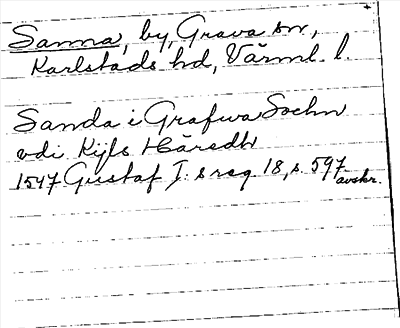 Sanna, by, Grava sn,
Karlstads hd, Värml. l.
Sanda i Grafwa Sochn
vdi Kijls Häredh
1547 Gustaf I:s reg. 18, s. 597
avskr.